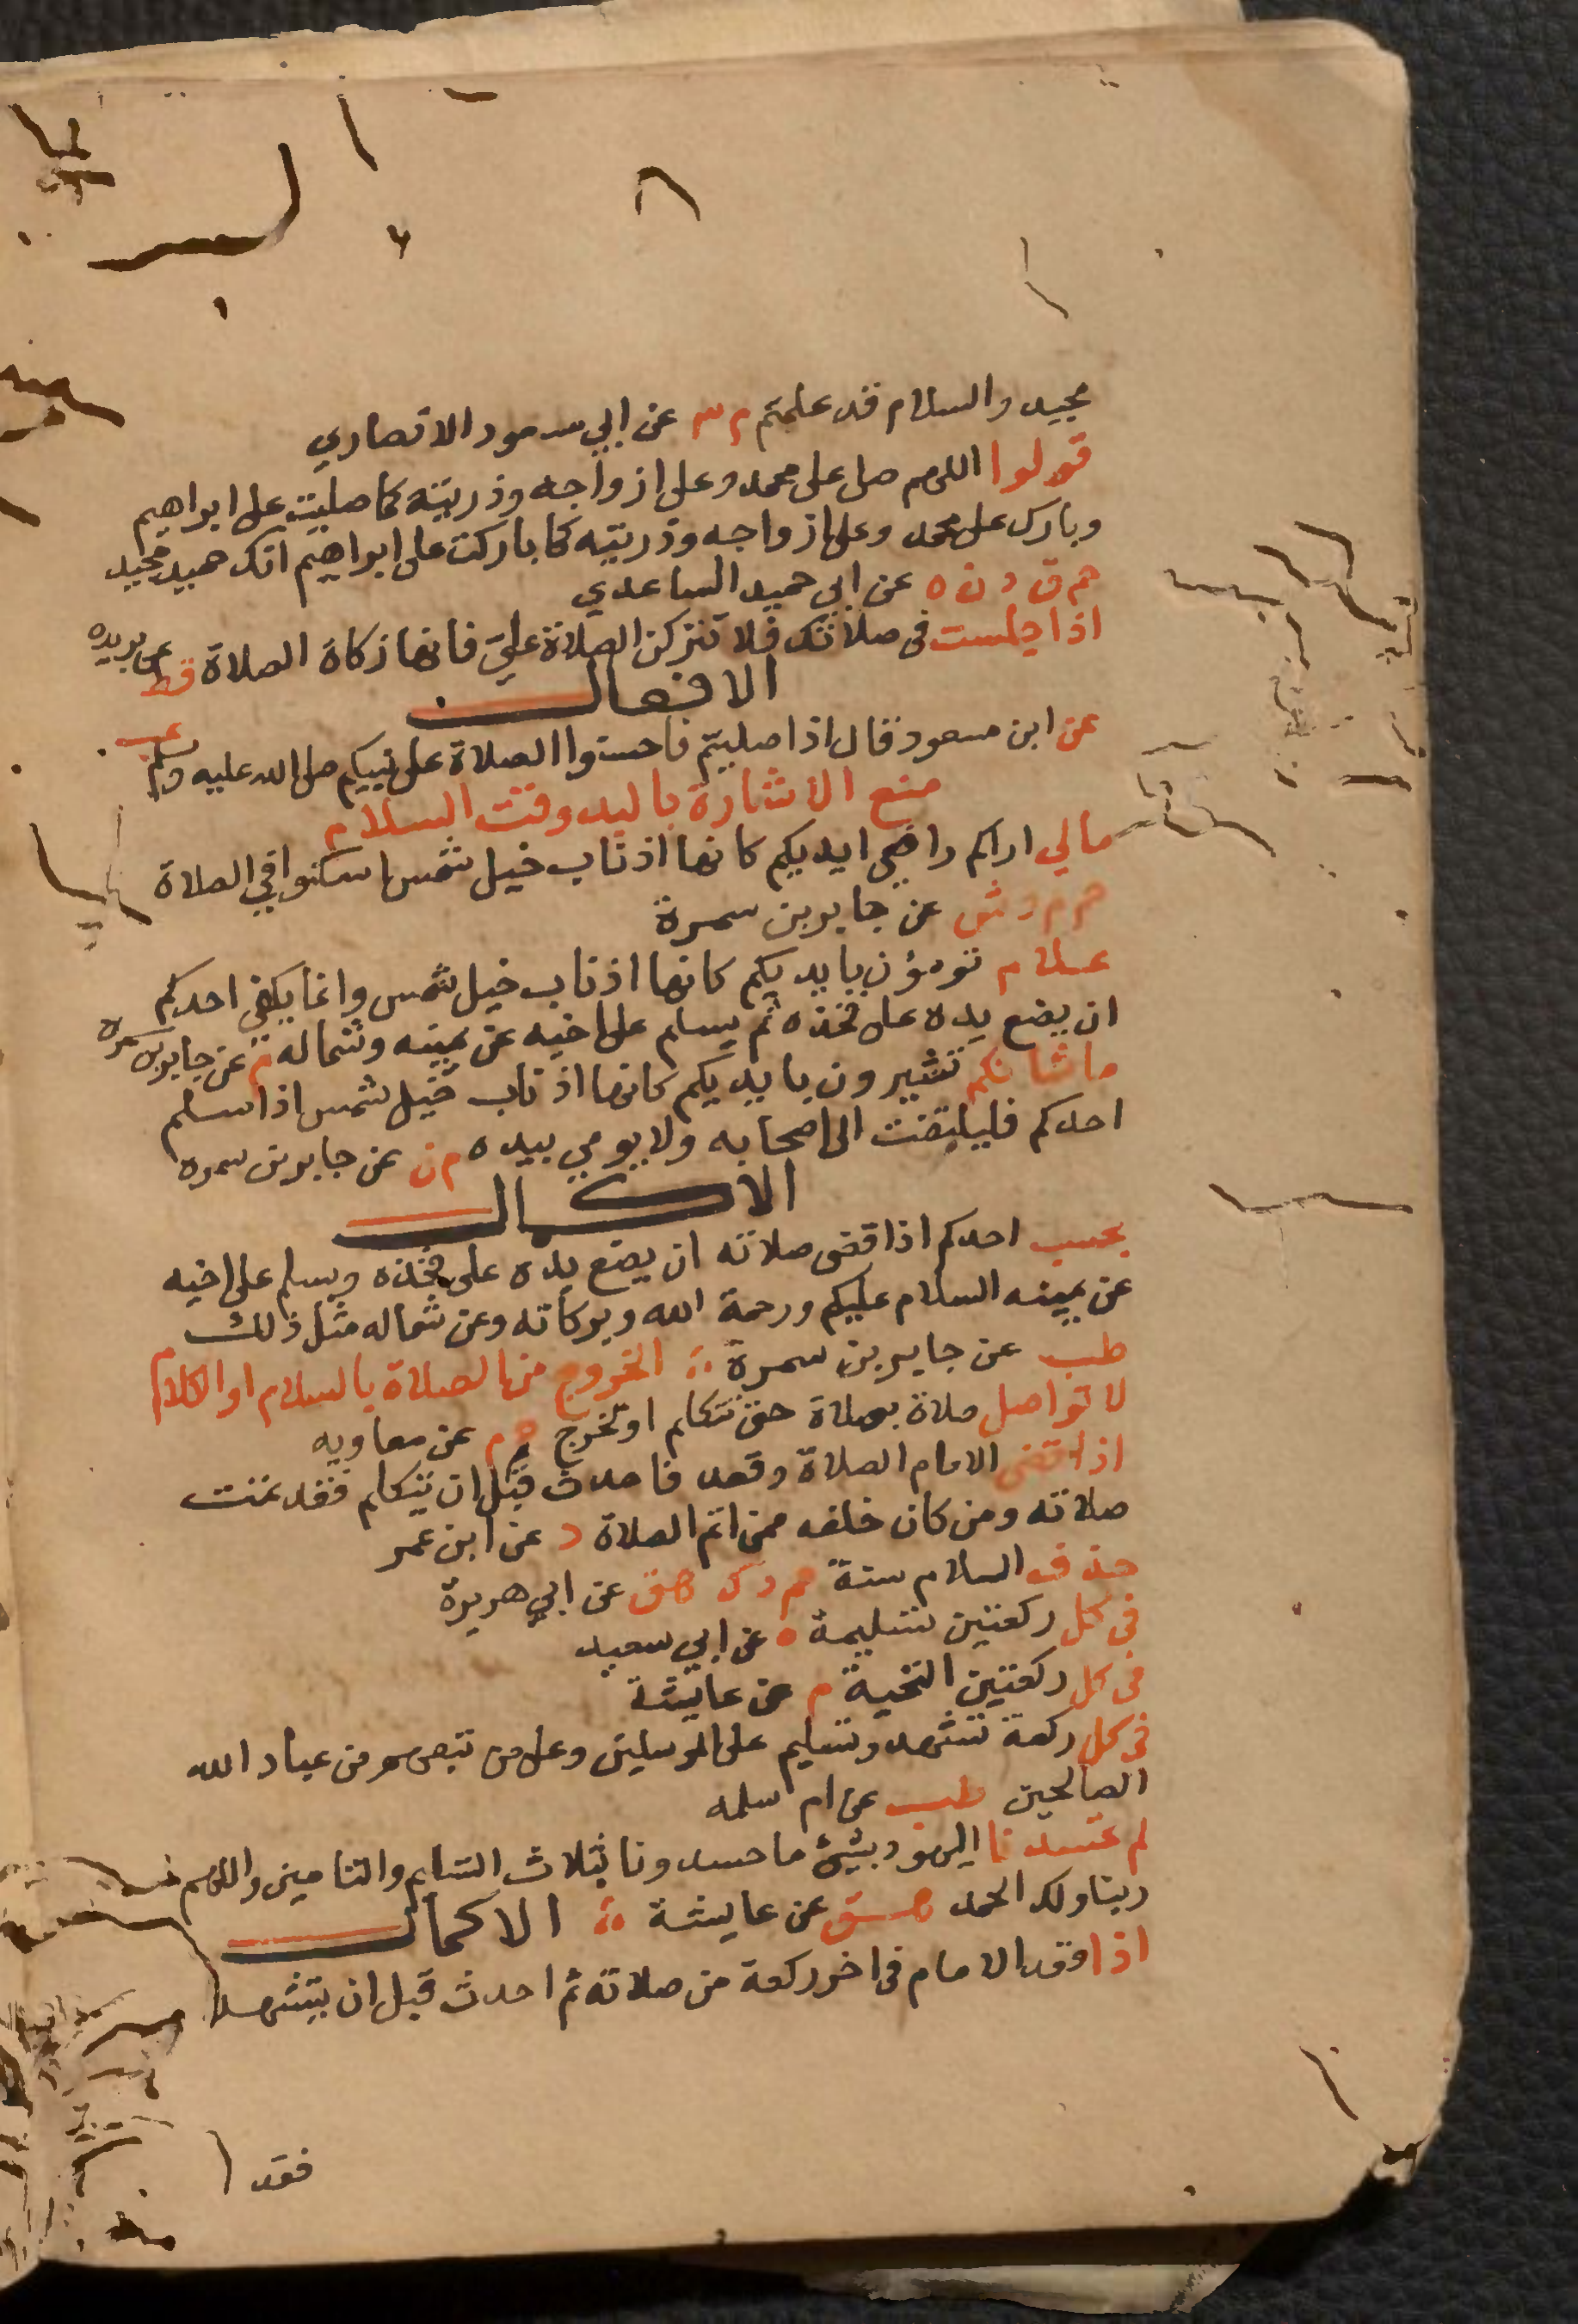 مجيد والسلام قد علمتم م ٣ عن ابي مسعود الانصاري
قولوا اللهم صل على محمد وعلى ازواجه وذريته كما صليت على ابراهيم
وبارك على محمد وعلى ازواجه وذريته كما باركت على ابراهيم انك حميد مجيد
حم ق د ن ه عن ابي حميد الساعدي
اذا جلست في صلاتك فلا تتركن الصلاة علي فانها زكاة الصلاة قط عن بريده
الافعال
عن ابن مسعود قال اذا صليتم فاحسنوا الصلاة على نبيكم صلى الله عليه وسلم عب
منع الاشارة باليد وقت السلام
مالي اراكم رافعي ايديكم كانها اذناب خيل شمس اسكنوا في الصلاة
حم م د ش عن جابر بن سمرة
علام تومؤن بايديكم كانها اذناب خيل شمس وانما يكفي احدكم
ان يضع يده على فخذه ثم يسلم على اخيه عن يمينه وشماله م عن جابر بن سمرة
ما شانكم تشيرون بايديكم كانها اذناب خيل شمس اذا سلم
احدكم فليلتفت الى اصحابه ولا يومي بيده م ن عن جابر بن سمره
الاكمال
بحسب احدكم اذا قضى صلاته ان يضع يده على فخذه ويسلم على اخيه
عن يمينه السلام عليكم ورحمة الله وبركاته وعن شماله مثل ذلك
طب عن جابر بن سمرة الخروج من الصلاة بالسلام او الكلام
لا تواصل صلاة بصلاة حتى تتكلم او تخرج حم عن معاويه
اذا قضى الامام الصلاة وقعد فاحدث قبل ان يتكلم فقد تمت
صلاته ومن كان خلفه ممن اتم الصلاة د عن ابن عمر
حذف السلام سنة حم د ك هق عن ابي هريرة
في كل ركعتين تسليمة ه عن ابي سعيد
في كل ركعتين التحية م عن عايشة
في كل ركعة تشهد وتسليم على المرسلين وعلى من تبعهم من عباد الله
الصالحين طب عن ام سلمه
لم تحسدنا اليهود بشيئ ما حسدونا بثلاث التسليم والتامين واللهم
ربنا ولك الحمد هق عن عايشة الاكمال
اذا قعد الامام في اخر ركعة من صلاته ثم احدث قبل ان يتشهد
فقد